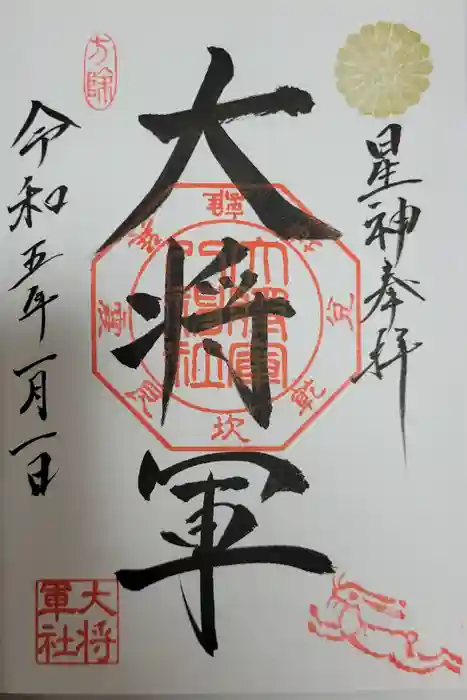 星神奉拝
大将軍
令和五年一月一日
方除
離
兌
乾
坎
艮
震
大将
軍社